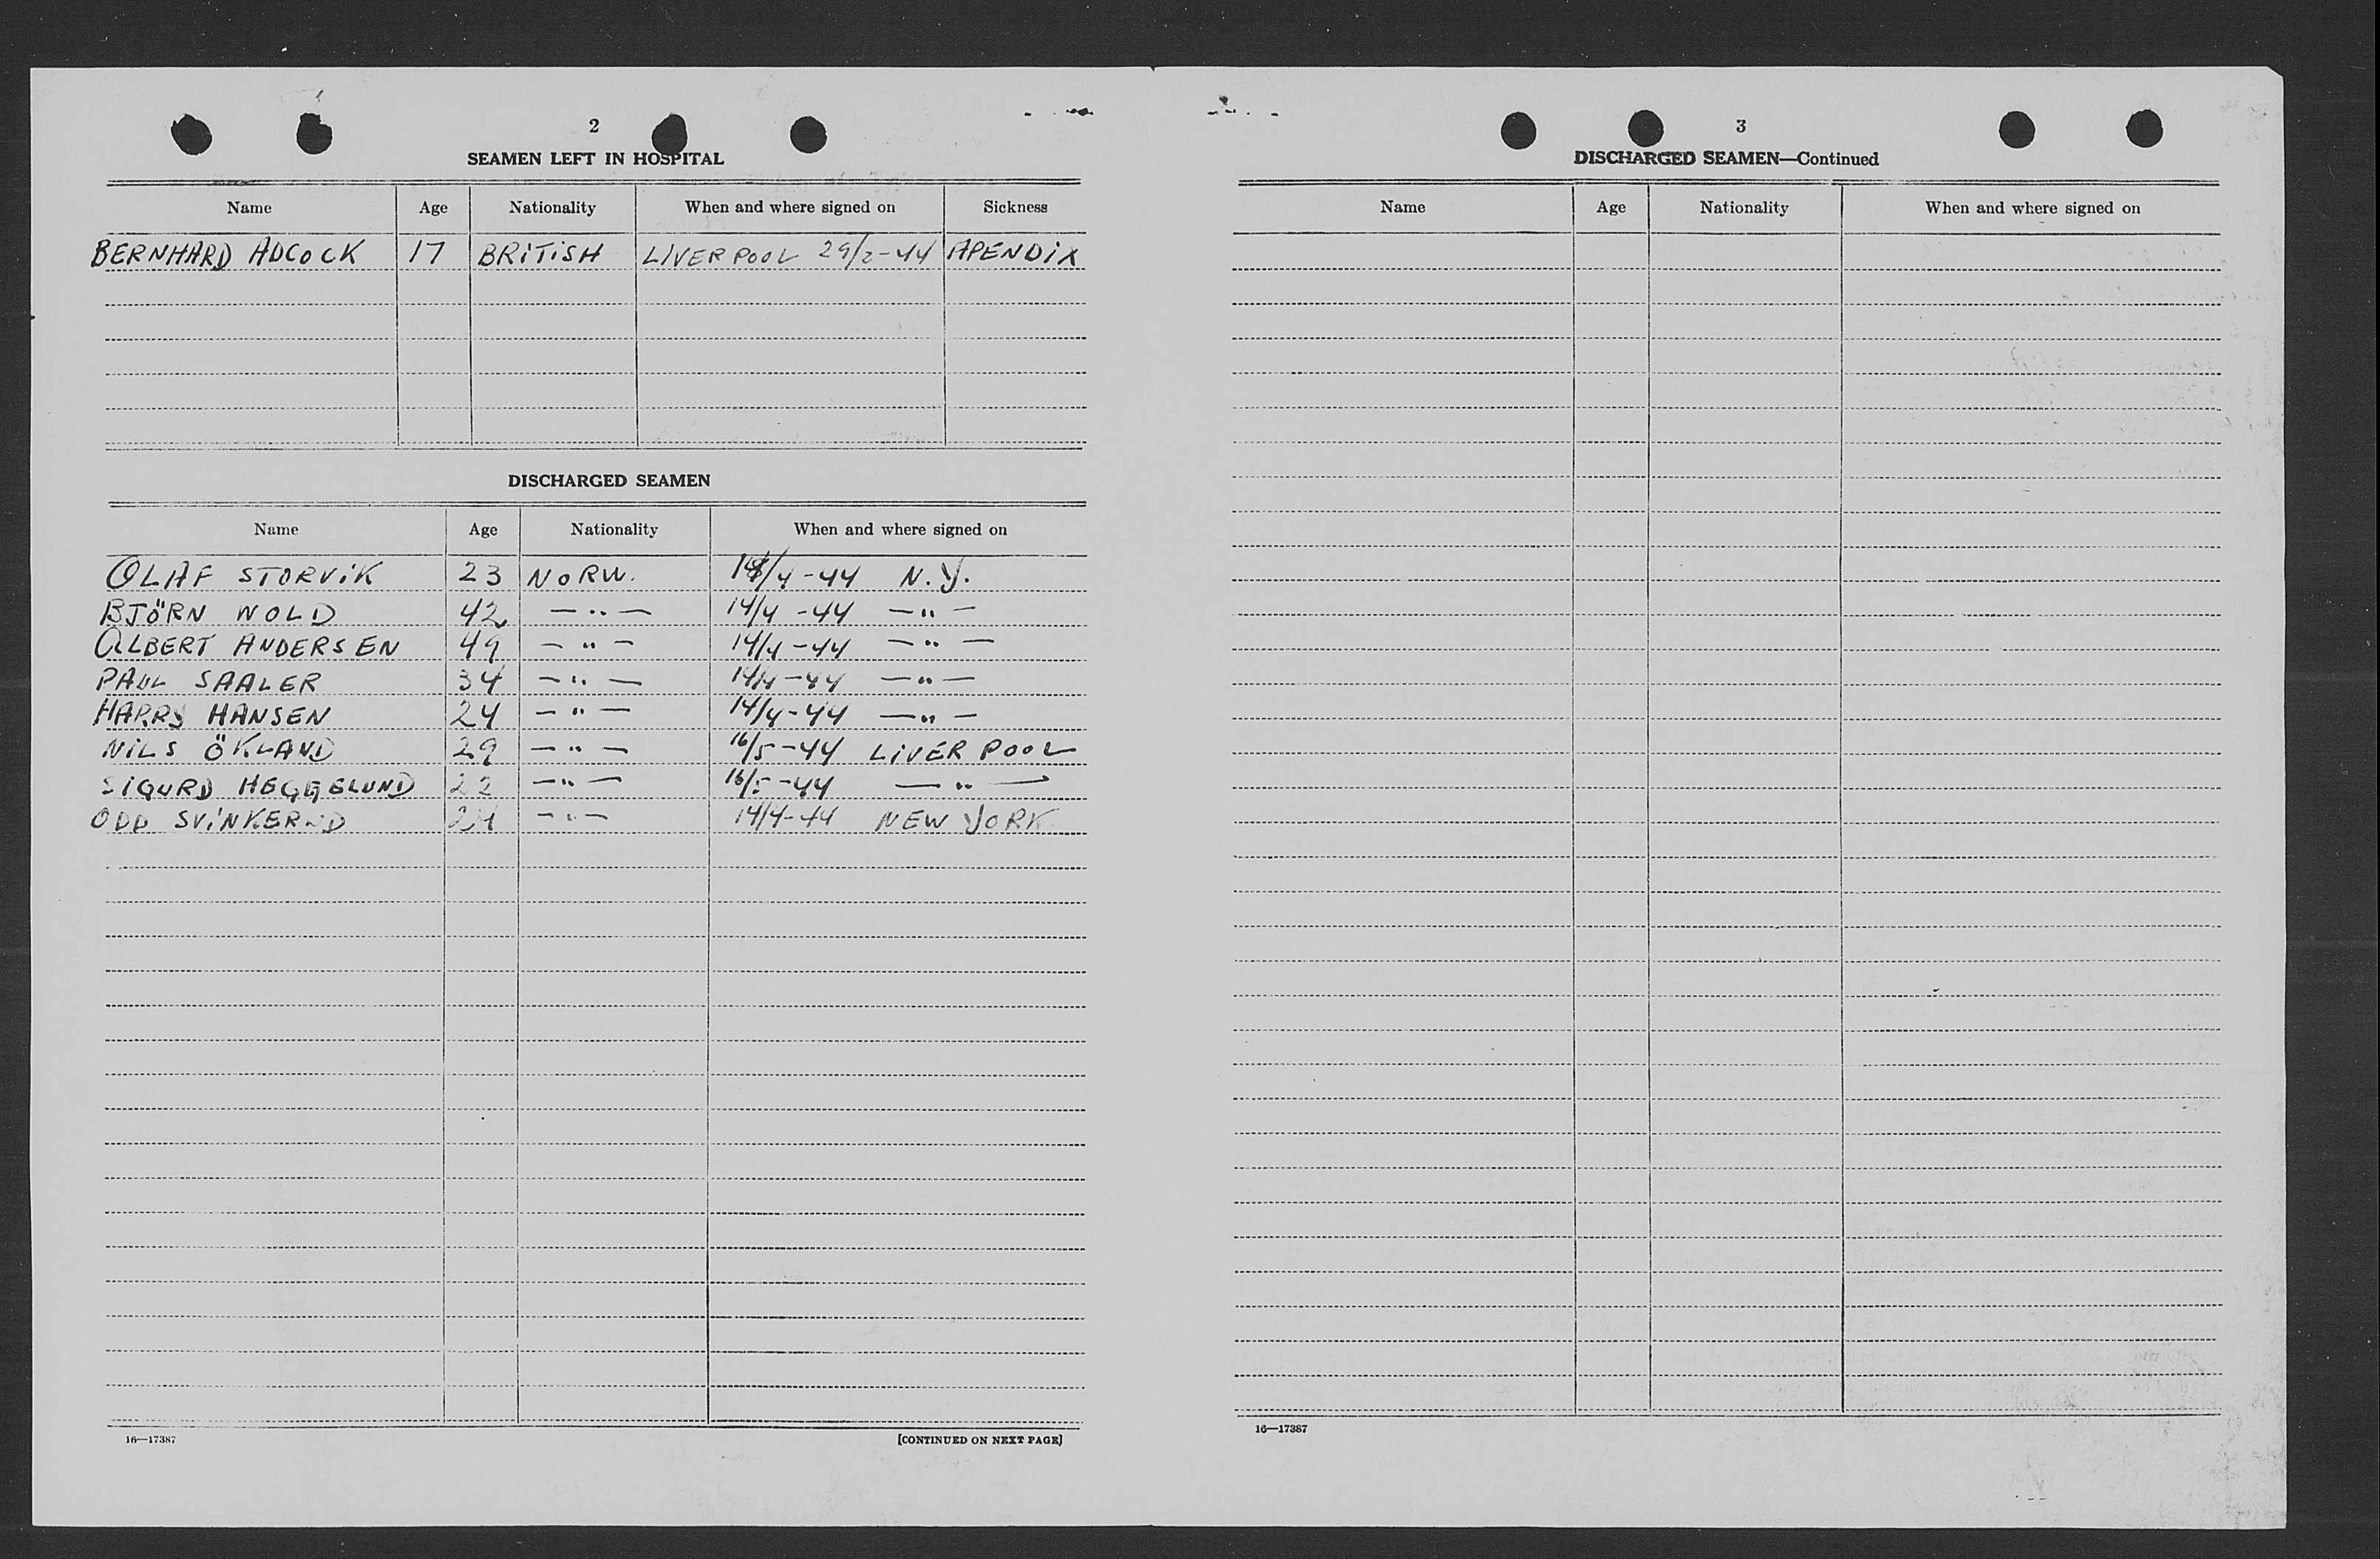 2
SEAMEN LEFT IN HOSPITAL
Name Age Nationality When and where signed on Sickness
BERNHARD ADCOCK 17 BRITISH LIVERPOOL 29/2-44 APENDIX
DISCHARGED SEAMEN
Name Age Nationality When and where signed on
OLAF STORVIK 23 NORW. 14/4-44 N.Y.
BJÖRN WOLD 42 —"— 14/4-44 —"—
ALBERT ANDERSEN 49 —"— 14/4-44 —"—
PAUL SAALER 34 —"— 14/4-44 —"—
HARRY HANSEN 24 —"— 14/4-44 —"—
NILS ÖKLAND 29 —"— 16/5-44 LIVERPOOL
SIGURD HEGGELUND 22 —"— 16/5-44 —"—
ODD 24 —"— 14/4-44 NEW YORK
16—17387 [CONTINUED ON NEXT PAGE]
3
DISCHARGED SEAMEN—Continued
Name Age Nationality When and where signed on
16—17387